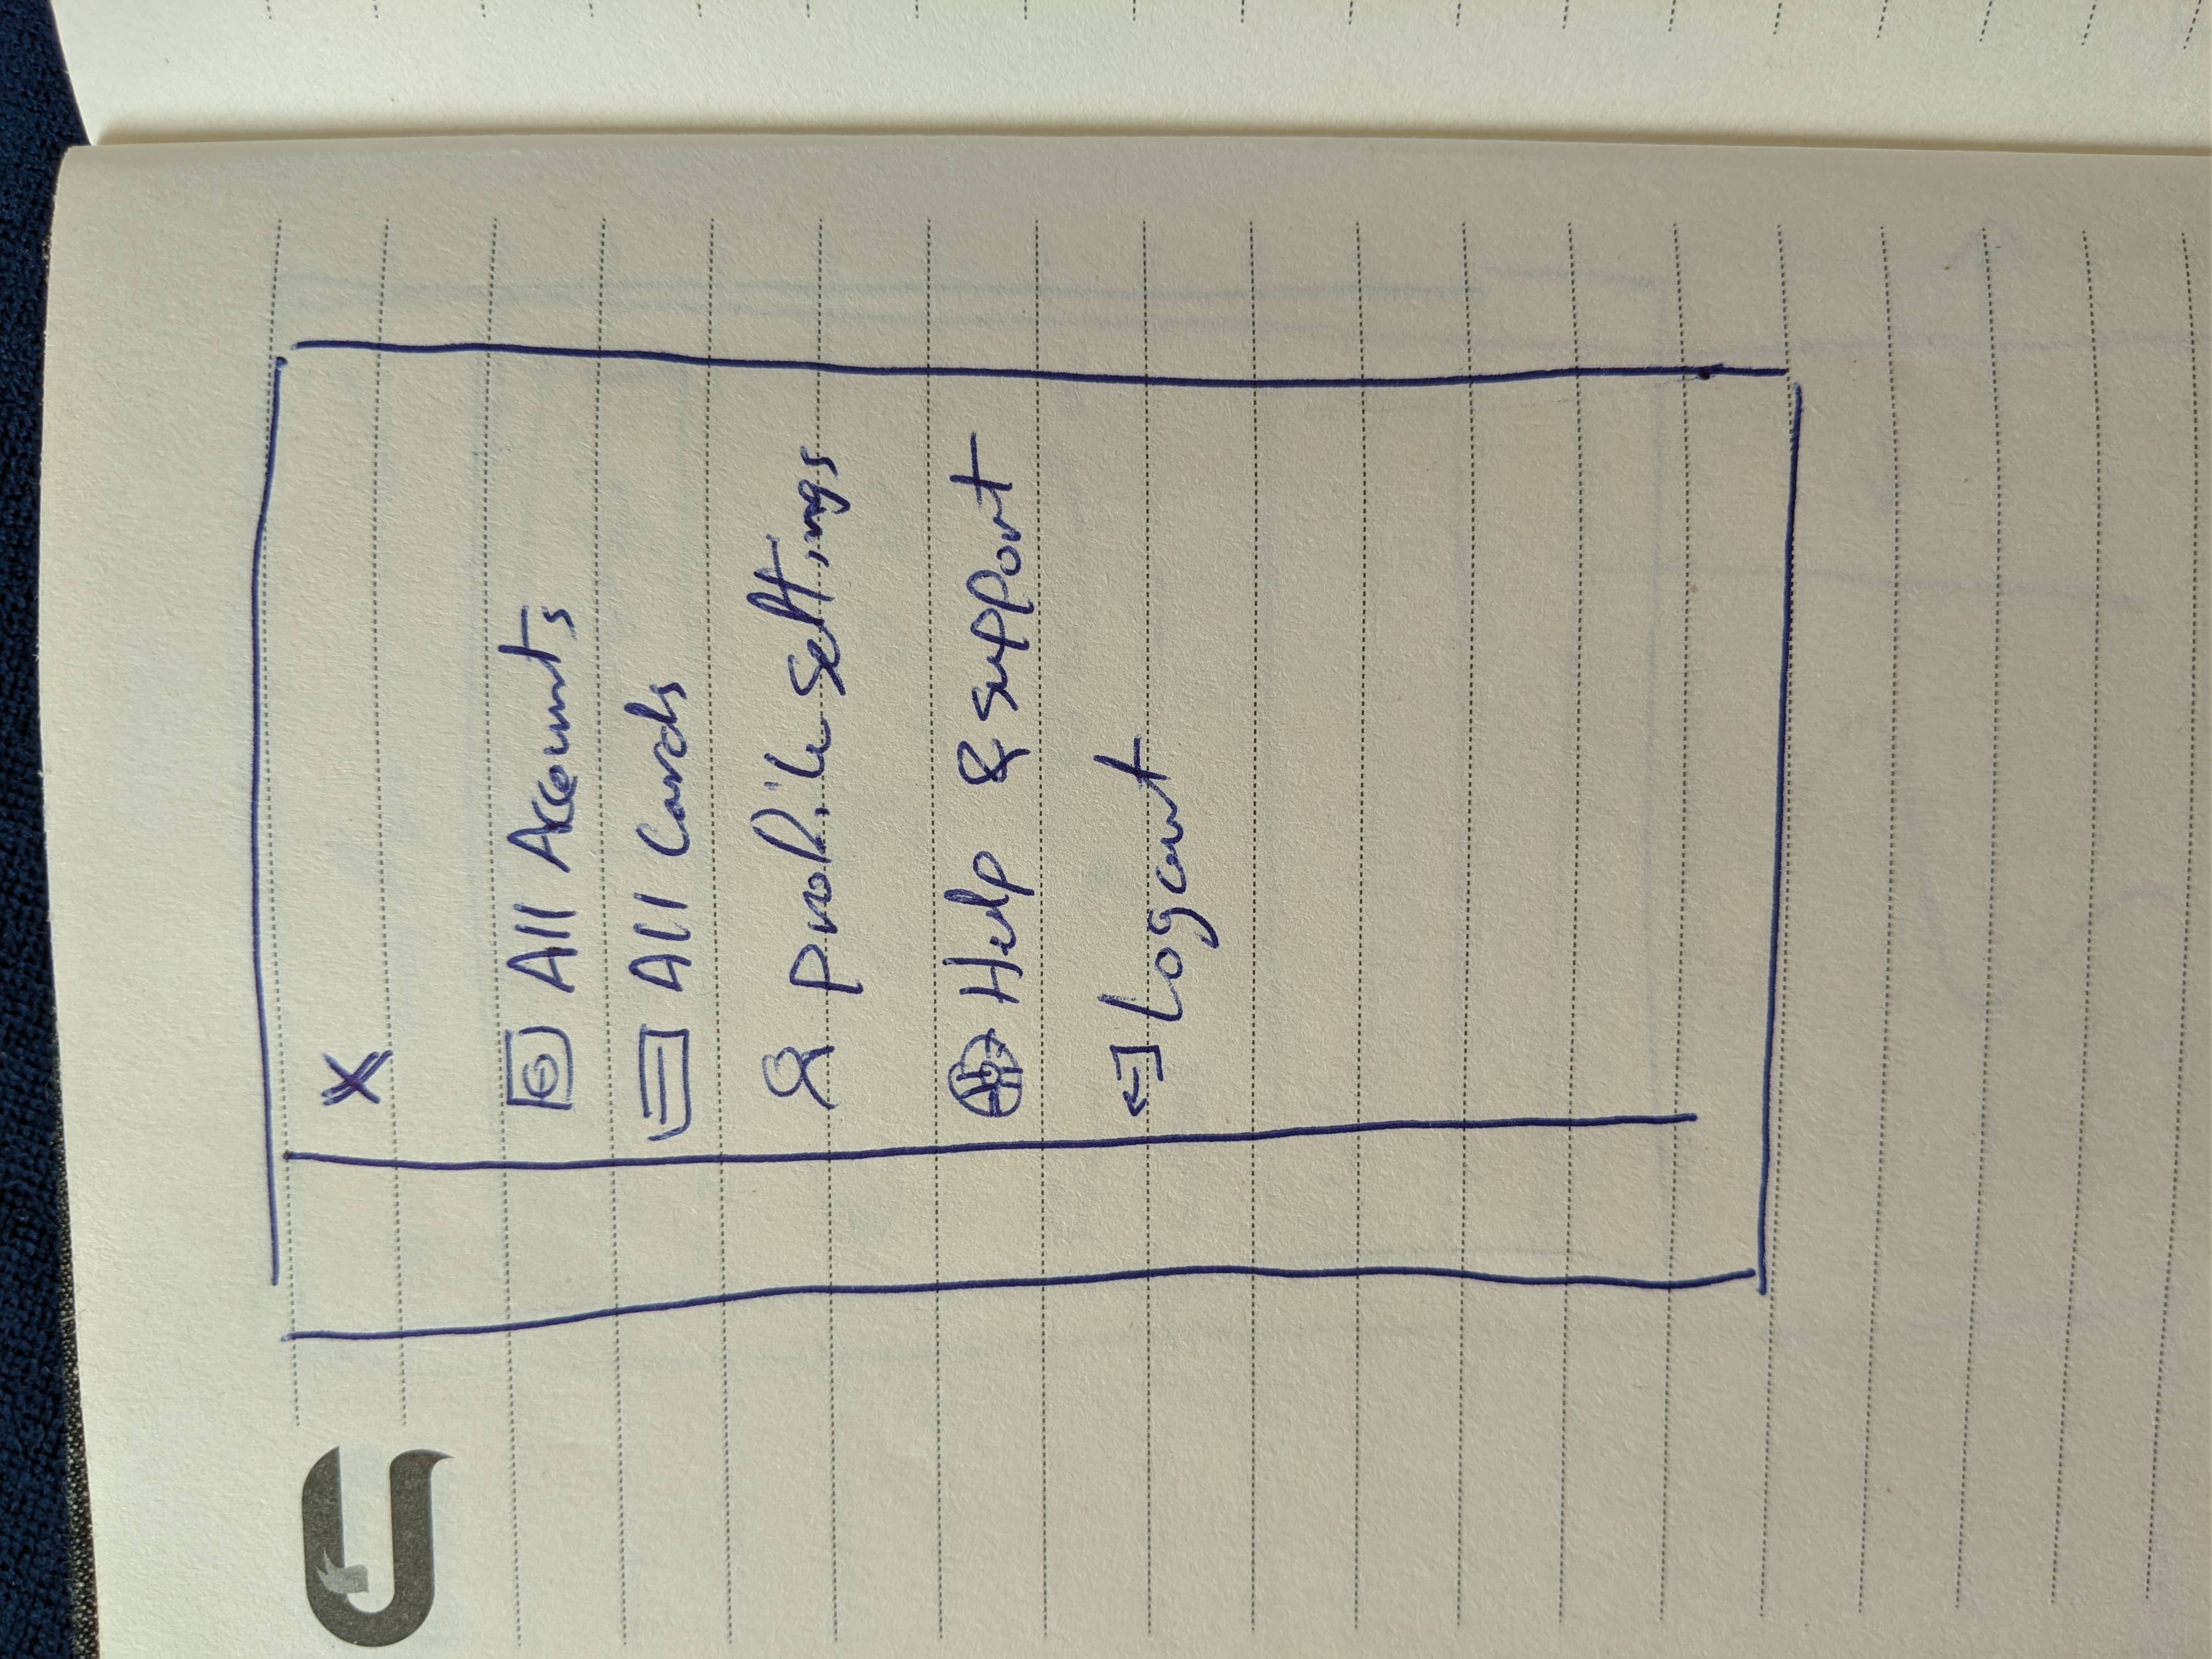 X
All Accounts
All Cards
profile settings
Help & support
Logout